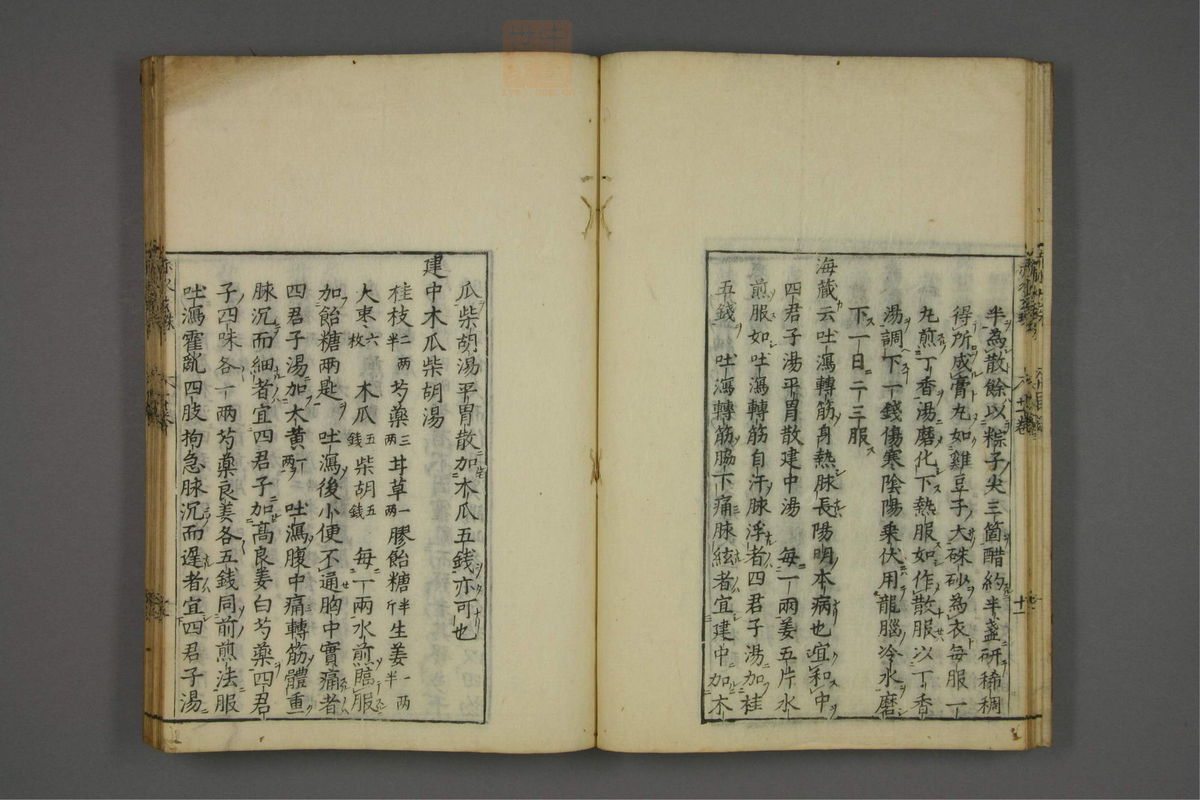 半為散餘以粽子尖三箇醋約半盞研稀稠
得所成膏丸如雞豆子大硃砂為衣每服一
丸煎丁香湯磨化下熱服如作散服以丁香
湯調下一錢傷寒陰陽乘伏用龍腦冷水磨
下一日二三服
海藏云吐瀉轉筋身熱脉長陽明本病也宜和中
四君子湯平胃散建中湯 每一兩姜五片水
煎服如吐瀉轉筋自汗脉浮者四君子湯加桂
五錢 吐瀉轉筋脇下痛脉絃者宜建中加木
瓜柴胡湯平胃散加木瓜五錢亦可也
建中木瓜柴胡湯
桂枝二兩半 芍藥三兩 甘草一兩 膠飴糖半斤 生姜一兩半
大棗六枚 木瓜五錢 柴胡五錢 每一兩水煎臨服
加飴糖兩匙 吐瀉後小便不通胸中實痛者
四君子湯加大黄一兩 吐瀉腹中痛轉筋體重
脉沉而細者宜四君子加髙良姜白芍藥四君
子四味各一兩芍藥良姜各五錢同前煎法服
吐瀉霍亂四肢拘急脉沉而遲者宜四君子湯